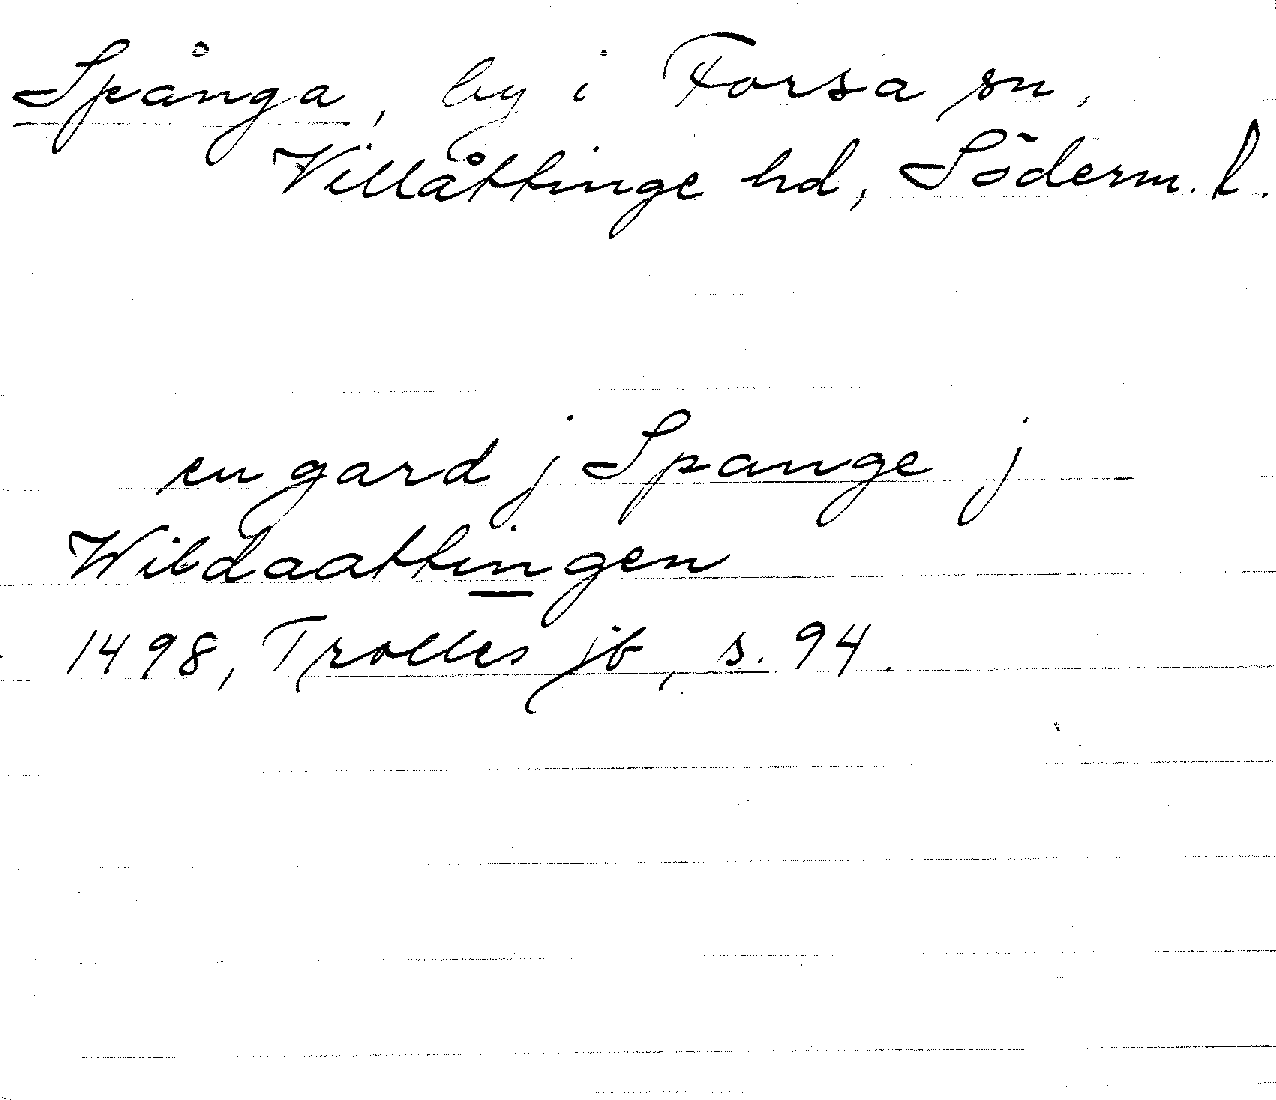 Spånga, by i Forsa sn,
Villåttinge hd, Söderm. l.
en gard j Spange j
Wildaattingen
1498, Trolles jb, s. 94.